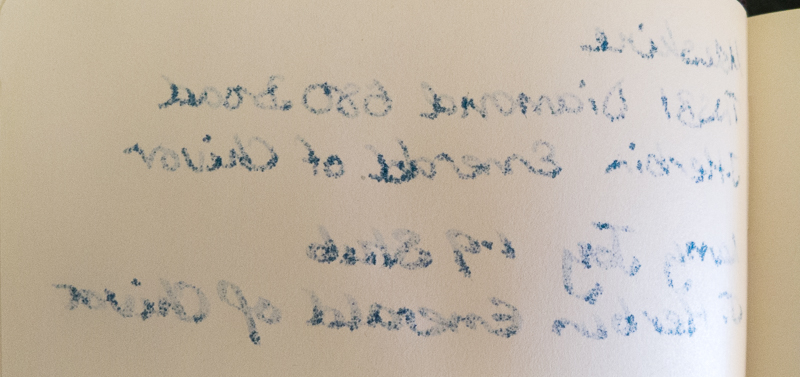 TWSBI Diamond 580 Broad
Herbin Emerald of Chivor
Lamy Joy 1.9 Stub
J. Herbin Emerald of Chivor